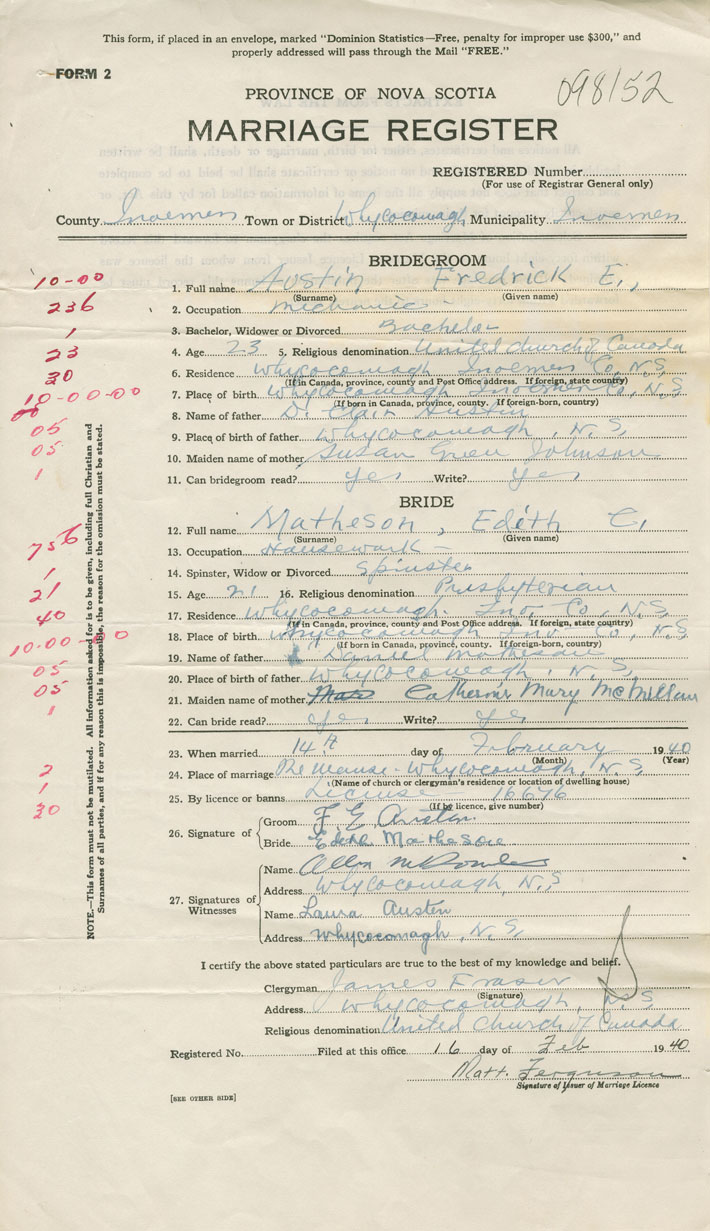 This form, if placed in an envelope, marked "Dominion Statistics—Free, penalty for improper use $300," and
properly addressed will pass through the Mail "FREE."
FORM 2
PROVINCE OF NOVA SCOTIA
098152
MARRIAGE REGISTER
REGISTERED Number
(For use of Registrar General only)
County Inverness Town or District Whycocomagh Municipality Inverness
BRIDEGROOM
10-00
1. Full name Austin Fredrick E.,
(Surname) (Given name)
236
2. Occupation Michanic -
1
3. Bachelor, Widower or Divorced Bachelor
23
4. Age 23 5. Religious denomination United Church of Canada
20
6. Residence Whycocomagh Inverness Co, N.S.
(If in Canada, province, county and Post Office address. If foreign, state country)
10-00-00
7. Place of birth Whycocomagh Inverness Co, N.S.
(If born in Canada, province, county. If foreign-born, country)
8. Name of father D. Clair Austin
05
9. Place of birth of father Whycocomagh, N.S,
05
10. Maiden name of mother Susan Johnson
1
11. Can bridegroom read? Yes Write? Yes
BRIDE
12. Full name Matheson, Edith C,
(Surname) (Given name)
756
13. Occupation Housework -
1
14. Spinster, Widow or Divorced Spinster
21
15. Age 21 16. Religious denomination Presbyterian
40
17. Residence Whycocomagh. Inv. Co, N.S
(If in Canada, province, county and Post Office address. If foreign, state country)
10.00-00
18. Place of birth Whycocomagh Inv Co, N.S
(If born in Canada, province, county. If foreign-born, country)
19. Name of father Daniel Matheson
05
20. Place of birth of father Whycocomagh, N.S
05
21. Maiden name of mother Catherine Mary McMillan
1
22. Can bride read? Yes Write? Yes
23. When married 14th day of February 1940
(Month) (Year)
2
24. Place of marriage The Manse - Whycocomagh, N.S
(Name of church or clergyman's residence or location of dwelling house)
1
25. By licence or banns License 16676
(If by licence, give number)
20
26. Signature of
Groom F. E. Austin
Bride Edith Matheson
27. Signatures of Witnesses
Name
Address Whycocomagh, N.S
Name Laura Austen
Address Whycocomagh, N.S,
I certify the above stated particulars are true to the best of my knowledge and belief.
Clergyman James Fraser
(Signature)
Address Whycocomagh, N.S
Religious denomination United Church of Canada
Registered No. Filed at this office 16 day of Feb 1940
Matt. Ferguson
Signature of Issuer of Marriage Licence
[SEE OTHER SIDE]
NOTE.—This form must not be mutilated. All information asked for is to be given, including full Christian and
Surnames of all parties, and if for any reason this is impossible, the reason for the omission must be stated.